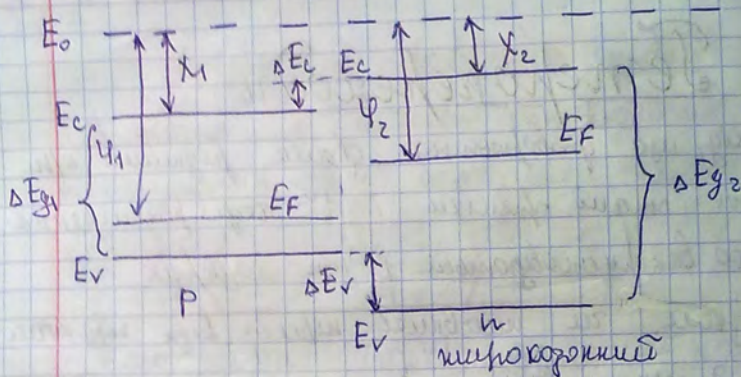 E₀
χ₁
ΔEc
Ec
χ₂
Ec
φ₁
φ₂
EF
ΔEg₁
EF
ΔEg₂
Ev
ΔEv
P
Ev
n
широкозонний